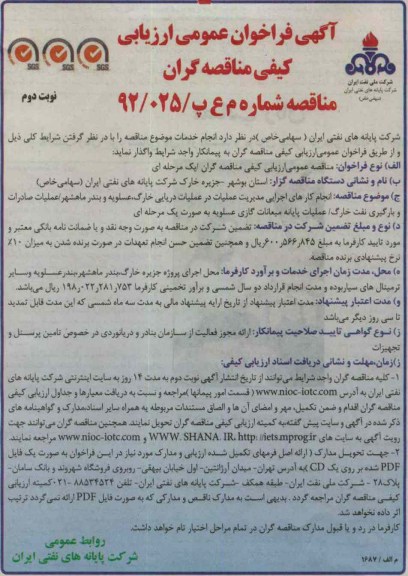 آگهی فراخوان عمومی ارزیابی
کیفی مناقصه گران
مناقصه شماره م ع پ/۹۲/۰۲۵
نوبت دوم
SGS
SGS
SGS
شرکت ملی نفت ایران
شرکت پایانه های نفتی ایران
(سهامی خاص)
شرکت پایانه های نفتی ایران ( سهامی خاص )در نظر دارد انجام خدمات موضوع مناقصه را با در نظر گرفتن شرایط کلی ذیل
و از طریق فراخوان عمومی ارزیابی کیفی مناقصه گران به پیمانکار واجد شرایط واگذار نماید:
الف) نوع فراخوان: مناقصه عمومی/ارزیابی کیفی مناقصه گران /یک مرحله ای
ب) نام و نشانی دستگاه مناقصه گزار: استان بوشهر -جزیره خارک شرکت پایانه های نفتی ایران (سهامی خاص)
ج) موضوع مناقصه: انجام کار های اجرایی مدیریت عملیات در عملیات دریایی خارک،عسلویه و بندر ماهشهر/عملیات صادرات
و بارگیری نفت خارک/ عملیات پایانه میعانات گازی عسلویه به صورت یک مرحله ای
د) نوع و مبلغ تضمین شرکت در مناقصه: تضمین شرکت در مناقصه به صورت وجه نقد و یا ضمانت نامه بانکی معتبر و
مورد تایید کارفرما به مبلغ ۶۰۰,۵۶۶,۸۴۵ریال و همچنین تضمین حسن انجام تعهدات در صورت برنده شدن به میزان ۱۰٪
نرخ پیشنهادی برنده مناقصه.
ه) محل، مدت زمان اجرای خدمات و برآورد کارفرما: محل اجرای پروژه جزیره خارگ،بندر ماهشهر،بندرعسلویه وسایر
ترمینال های سیاربوده و مدت انجام قرارداد دو سال شمسی و برآورد تخمینی کارفرما ۱۹۸,۰۲۲,۲۸۱,۷۵۳ ریال می‌باشد.
و) مدت اعتبار پیشنهاد: مدت اعتبار پیشنهاد از تاریخ ارایه پیشنهاد مالی به مدت سه ماه شمسی که این مدت قابل تمدید
تا سی روز دیگر می‌باشد
ز) نوع گواهی تایید صلاحیت پیمانکار: ارائه مجوز فعالیت از سازمان بنادر و دریانوردی در خصوص تامین پرسنل و
تجهیزات
ز)زمان،مهلت و نشانی دریافت اسناد ارزیابی کیفی:
۱- کلیه مناقصه گران واجد شرایط می‌توانند از تاریخ انتشار آگهی نوبت دوم به مدت ۱۴ روز به سایت اینترنتی شرکت پایانه های
نفتی ایران به آدرس www.nioc-iotc.com ( قسمت امور پیمانها )مراجعه و نسبت به دریافت معیارها و جداول ارزیابی کیفی
مناقصه گران اقدام و ضمن تکمیل، مهر و امضای آن ها و الصاق مستندات مربوطه به همراه سایر اسناد،مدارک و گواهینامه های
ذکر شده در آگهی و سایت پیش گفته‌به کمیته ارزیابی کیفی مناقصه گران تحویل نمایند. همچنین مناقصه گران می‌توانند جهت
رویت آگهی به سایت های WWW. SHANA. IR، http://iets.mprog.ir و www.nioc-iotc.com مراجعه نمایند.
۲- جهت تحویل مدارک ( ارائه اصل فرمهای تکمیل شده ارزیابی و مدارک مورد نیاز در این فراخوان به صورت یک فایل
PDF شده بر روی یک CD )به آدرس تهران- میدان آرژانتین- اول خیابان بیهقی- روبروی فروشگاه شهروند و بانک سامان-
پلاک۲۸ - شرکت ملی نفت ایران- طبقه همکف -شرکت پایانه های نفتی ایران- تلفن ۸۸۵۳۴۵۲۴ -۰۲۱- کمیته ارزیابی
کیفی مناقصه گران مراجعه گردد . بدیهی است به مدارک ناقص و مدارکی که به صورت فایل PDF ارائه نمی‌گردد ترتیب
اثر داده نخواهد شد.
کارفرما در رد و یا قبول مدارک مناقصه گران در تمام مراحل اختیار تام خواهد داشت.
روابط عمومی
شرکت پایانه های نفتی ایران
م الف / ۱۶۸۷